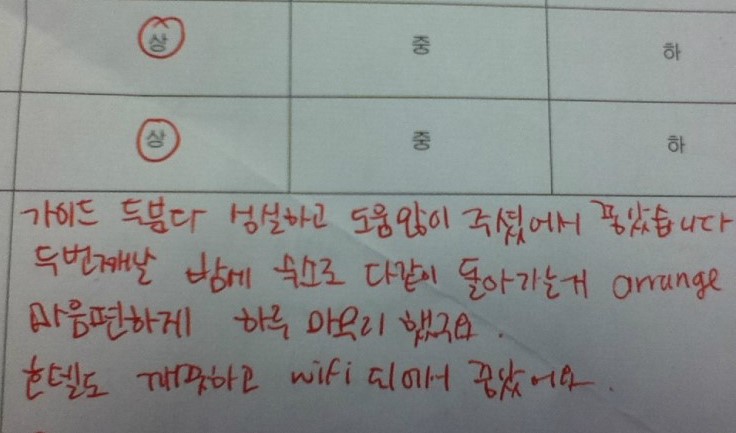 상 중 하
상 중 하
가이드 두분다 성실하고 도움많이 주셨어서 좋았습니다
두번째날 밤에 숙소로 다같이 돌아가는거 arrange
마음편하게 하루 마무리 했구요.
호텔도 깨끗하고 wifi 되에서 좋았어요.